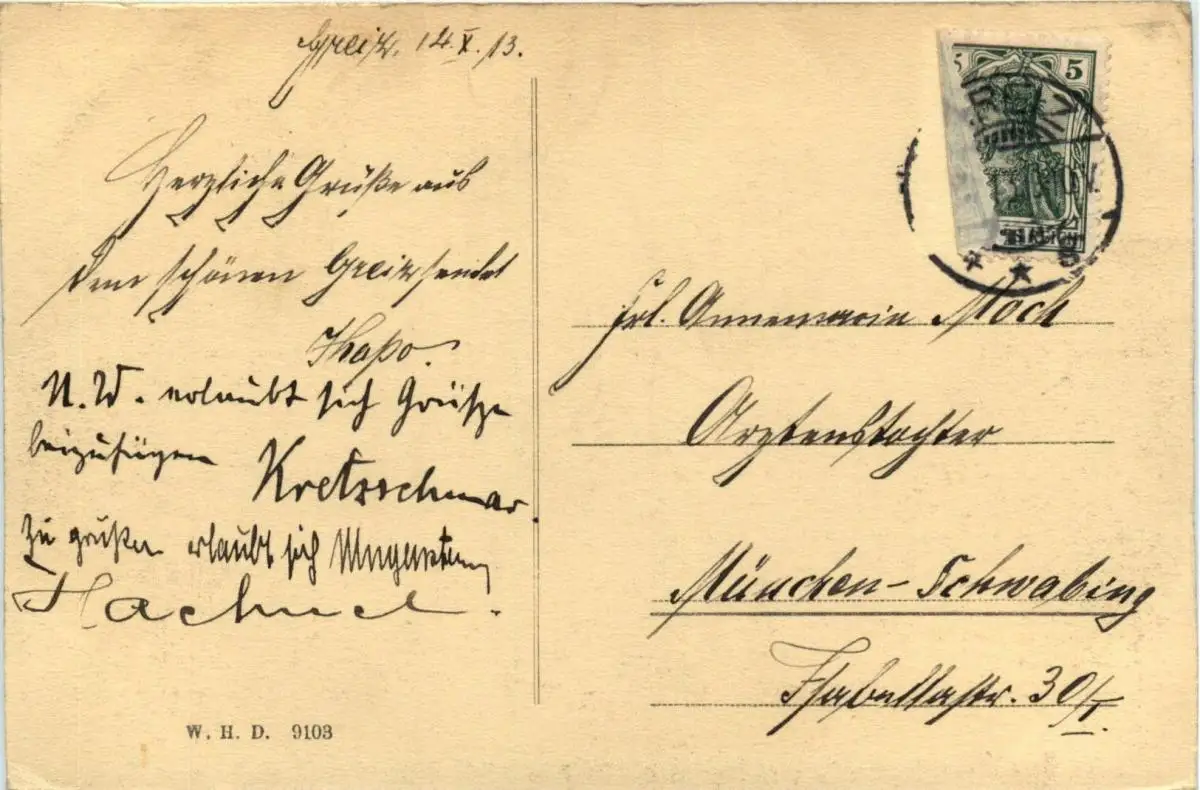 Greiz, 14.X.13.
Herzliche Grüße aus
dem schönen Greiz sendet
U. W. erlaubt sich Grüße
beizufügen Kretzschmar.
Zu grüßen erlaubt sich
W. H. D. 9103
5 5
Frl. Annemarie Moch
Arztenstochter
München-Schwabing
Isabellastr. 30/I.